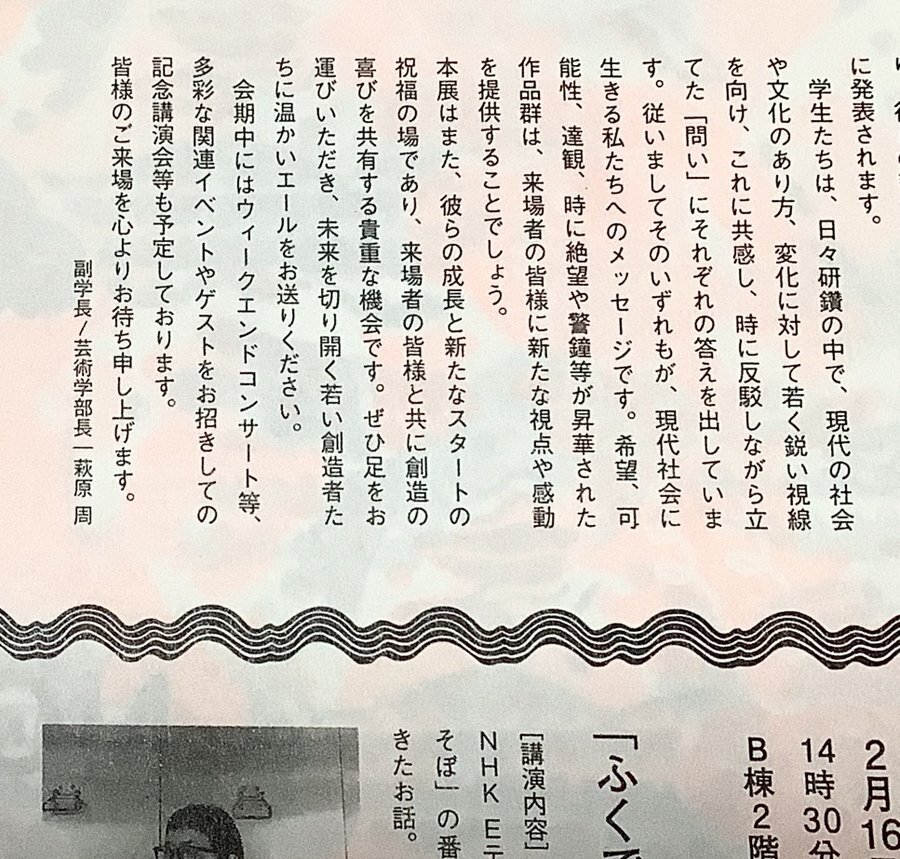 に発表されます。
学生たちは、日々研鑽の中で、現代の社会
や文化のあり方、変化に対して若く鋭い視線
を向け、これに共感し、時に反駁しながら立
てた「問い」にそれぞれの答えを出していま
す。従いましてそのいずれもが、現代社会に
生きる私たちへのメッセージです。希望、可
能性、達観、時に絶望や警鐘等が昇華された
作品群は、来場者の皆様に新たな視点や感動
を提供することでしょう。
本展はまた、彼らの成長と新たなスタートの
祝福の場であり、来場者の皆様と共に創造の
喜びを共有する貴重な機会です。ぜひ足をお
運びいただき、未来を切り開く若い創造者た
ちに温かいエールをお送りください。
会期中にはウィークエンドコンサート等、
多彩な関連イベントやゲストをお招きしての
記念講演会等も予定しております。
皆様のご来場を心よりお待ち申し上げます。
副学長/芸術学部長|萩原 周
2月16
14時30分
B棟2階
「ふくで
[講演内容]
NHK Eテ
そぼ」の番
きたお話。